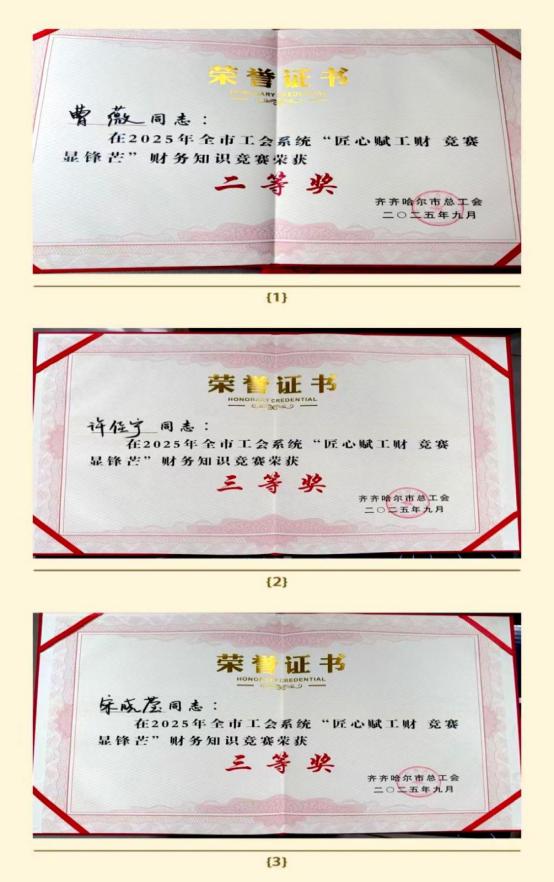 荣誉证书
HONORARY CREDENTIAL
曹薇同志：
在2025年全市工会系统“匠心赋工财 竞赛
显锋芒”财务知识竞赛荣获
二等奖
齐齐哈尔市总工会
二〇二五年九月
{1}
荣誉证书
HONORARY CREDENTIAL
许佳宁 同志：
在2025年全市工会系统“匠心赋工财 竞赛
显锋芒”财务知识竞赛荣获
三等奖
齐齐哈尔市总工会
二〇二五年九月
{2}
荣誉证书
HONORARY CREDENTIAL
同志：
在2025年全市工会系统“匠心赋工财 竞赛
显锋芒”财务知识竞赛荣获
三等奖
齐齐哈尔市总工会
二〇二五年九月
{3}